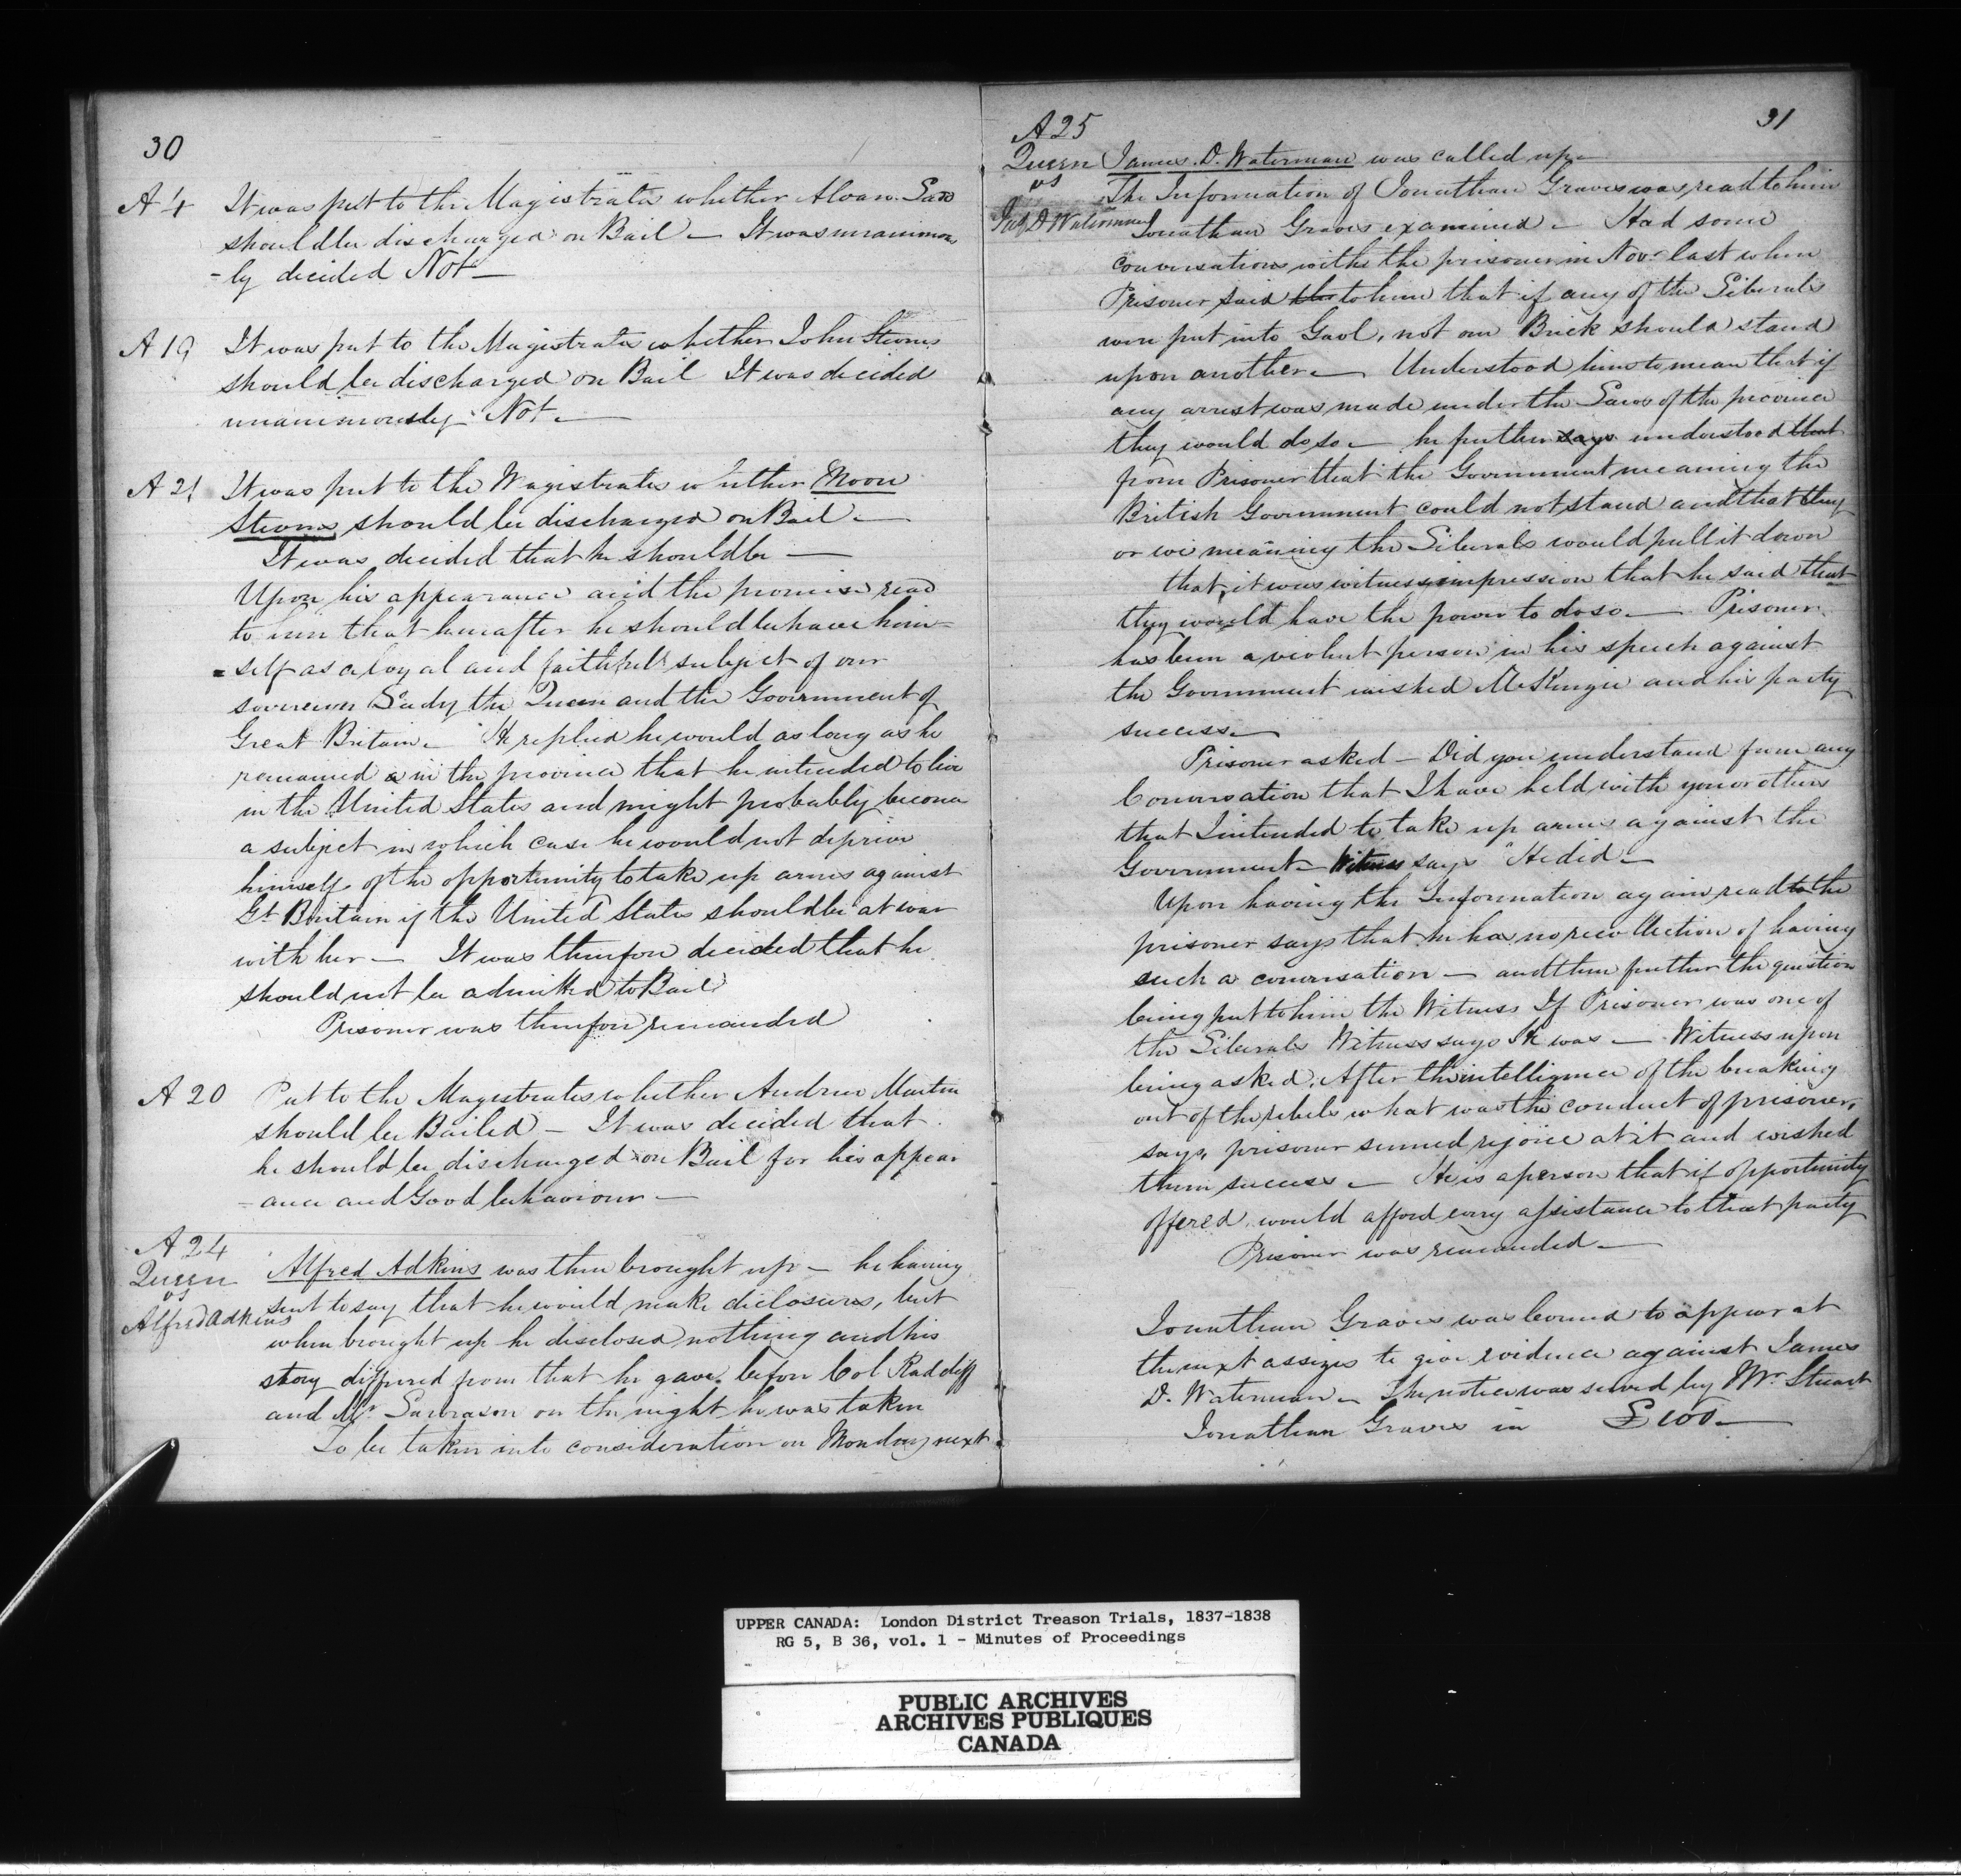 30
A 4 It was put to the Magistrates whether Alvaro Ladd
should be discharged on Bail — It was unanimous
=ly decided Not —
A 19 It was put to the Magistrates whether John Stevens
should be discharged on Bail It was decided
unanimously Not —
A 21 It was put to the Magistrates whether Moon
Stevens should be discharged on Bail —
It was decided that he should be —
Upon his appearance and the promise read
to him that hereafter he should behave him=
=self as a loyal and faithful subject of our
sovereign Lady the Queen and the Government of
Great Britain — He replied he would as long as he
remained in the province that he intended to live
in the United States and might probably become
a subject in which case he would not deprive
himself of the opportunity to take up arms against
Gt Britain if the United States should be at war
with her — It was therefore decided that he
should not be admitted to Bail
Prisoner was therefore remanded
A 20 Put to the Magistrates whether Andrew Martin
should be Bailed — It was decided that
he should be discharged on Bail for his appear
=ance and Good behaviour —
A 24
Queen
vs
Alfred Adkins
Alfred Adkins was then brought up — he having
sent to say that he would make diclosures, but
when brought up he disclosed nothing and his
story differed from that he gave before Col Radcliff
and Mr Lawrason on the night he was taken
To be taken into consideration on Monday next
31
A 25
Queen
vs
Jas D Waterman
James. D. Waterman was called up —
The Information of Jonathan Graves was read to him
Jonathan Graves examined — Had some
conversations with the prisoner in Novr last when
Prisoner said to him that if any of the Liberals
were put into Gaol, not one Brick should stand
upon another — Understood him to mean that if
any arrest was made under the Laws of the province
they would do so — he further says understood that
from Prisoner that the Government meaning the
British Government could not stand and that they
or we meaning the Liberals would pull it down
that it was witness impression that he said that
they would have the power to do so — Prisoner
has been a violent person in his speech against
the Government wished McKenzie and his party
success —
Prisoner asked — Did you understand from any
Conversation that I have held with you or others
that I intended to take up arms against the
Government — Witness says He did —
Upon having the Information again read to the
prisoner says that he has no recollection of having
such a conversation — and then further the question
being put to him the Witness If Prisoner was one of
the Liberals Witness says He was — Witness upon
being asked. After the intelligence of the breaking
out of the rebels what was the conduct of prisoner,
says, prisoner seemed rejoice at it and wished
them success — He is a person that if opportunity
offered, would afford every assistance to that party
Prisoner was remanded —
Jonathan Graves was bound to appear at
the next assizes to give evidence against James
D. Waterman — The notice was served by Mr Stuart
Jonathan Graves in £100 —
UPPER CANADA: London District Treason Trials, 1837-1838
RG 5, B 36, vol. 1 - Minutes of Proceedings
PUBLIC ARCHIVES
ARCHIVES PUBLIQUES
CANADA